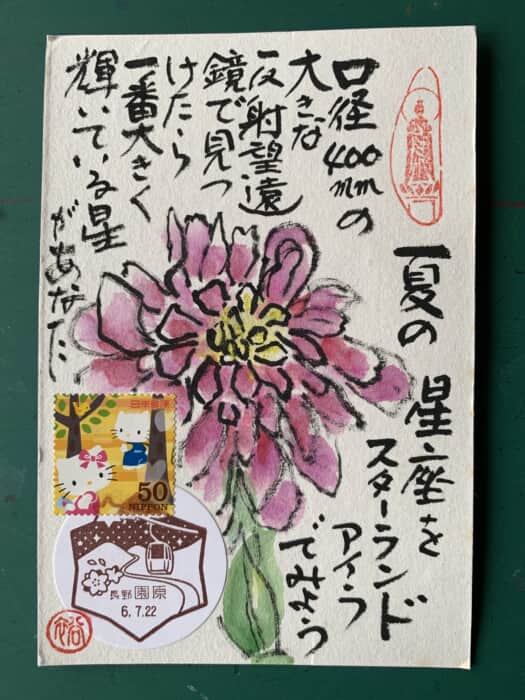 夏の 星座を
スターランド
アイラ
でみよう
口径400mmの
大きな
反射望遠
鏡で見つ
けたら
一番大きく
輝いている星
があなた
日本郵便
50
NIPPON
長野 園原
6.7.22